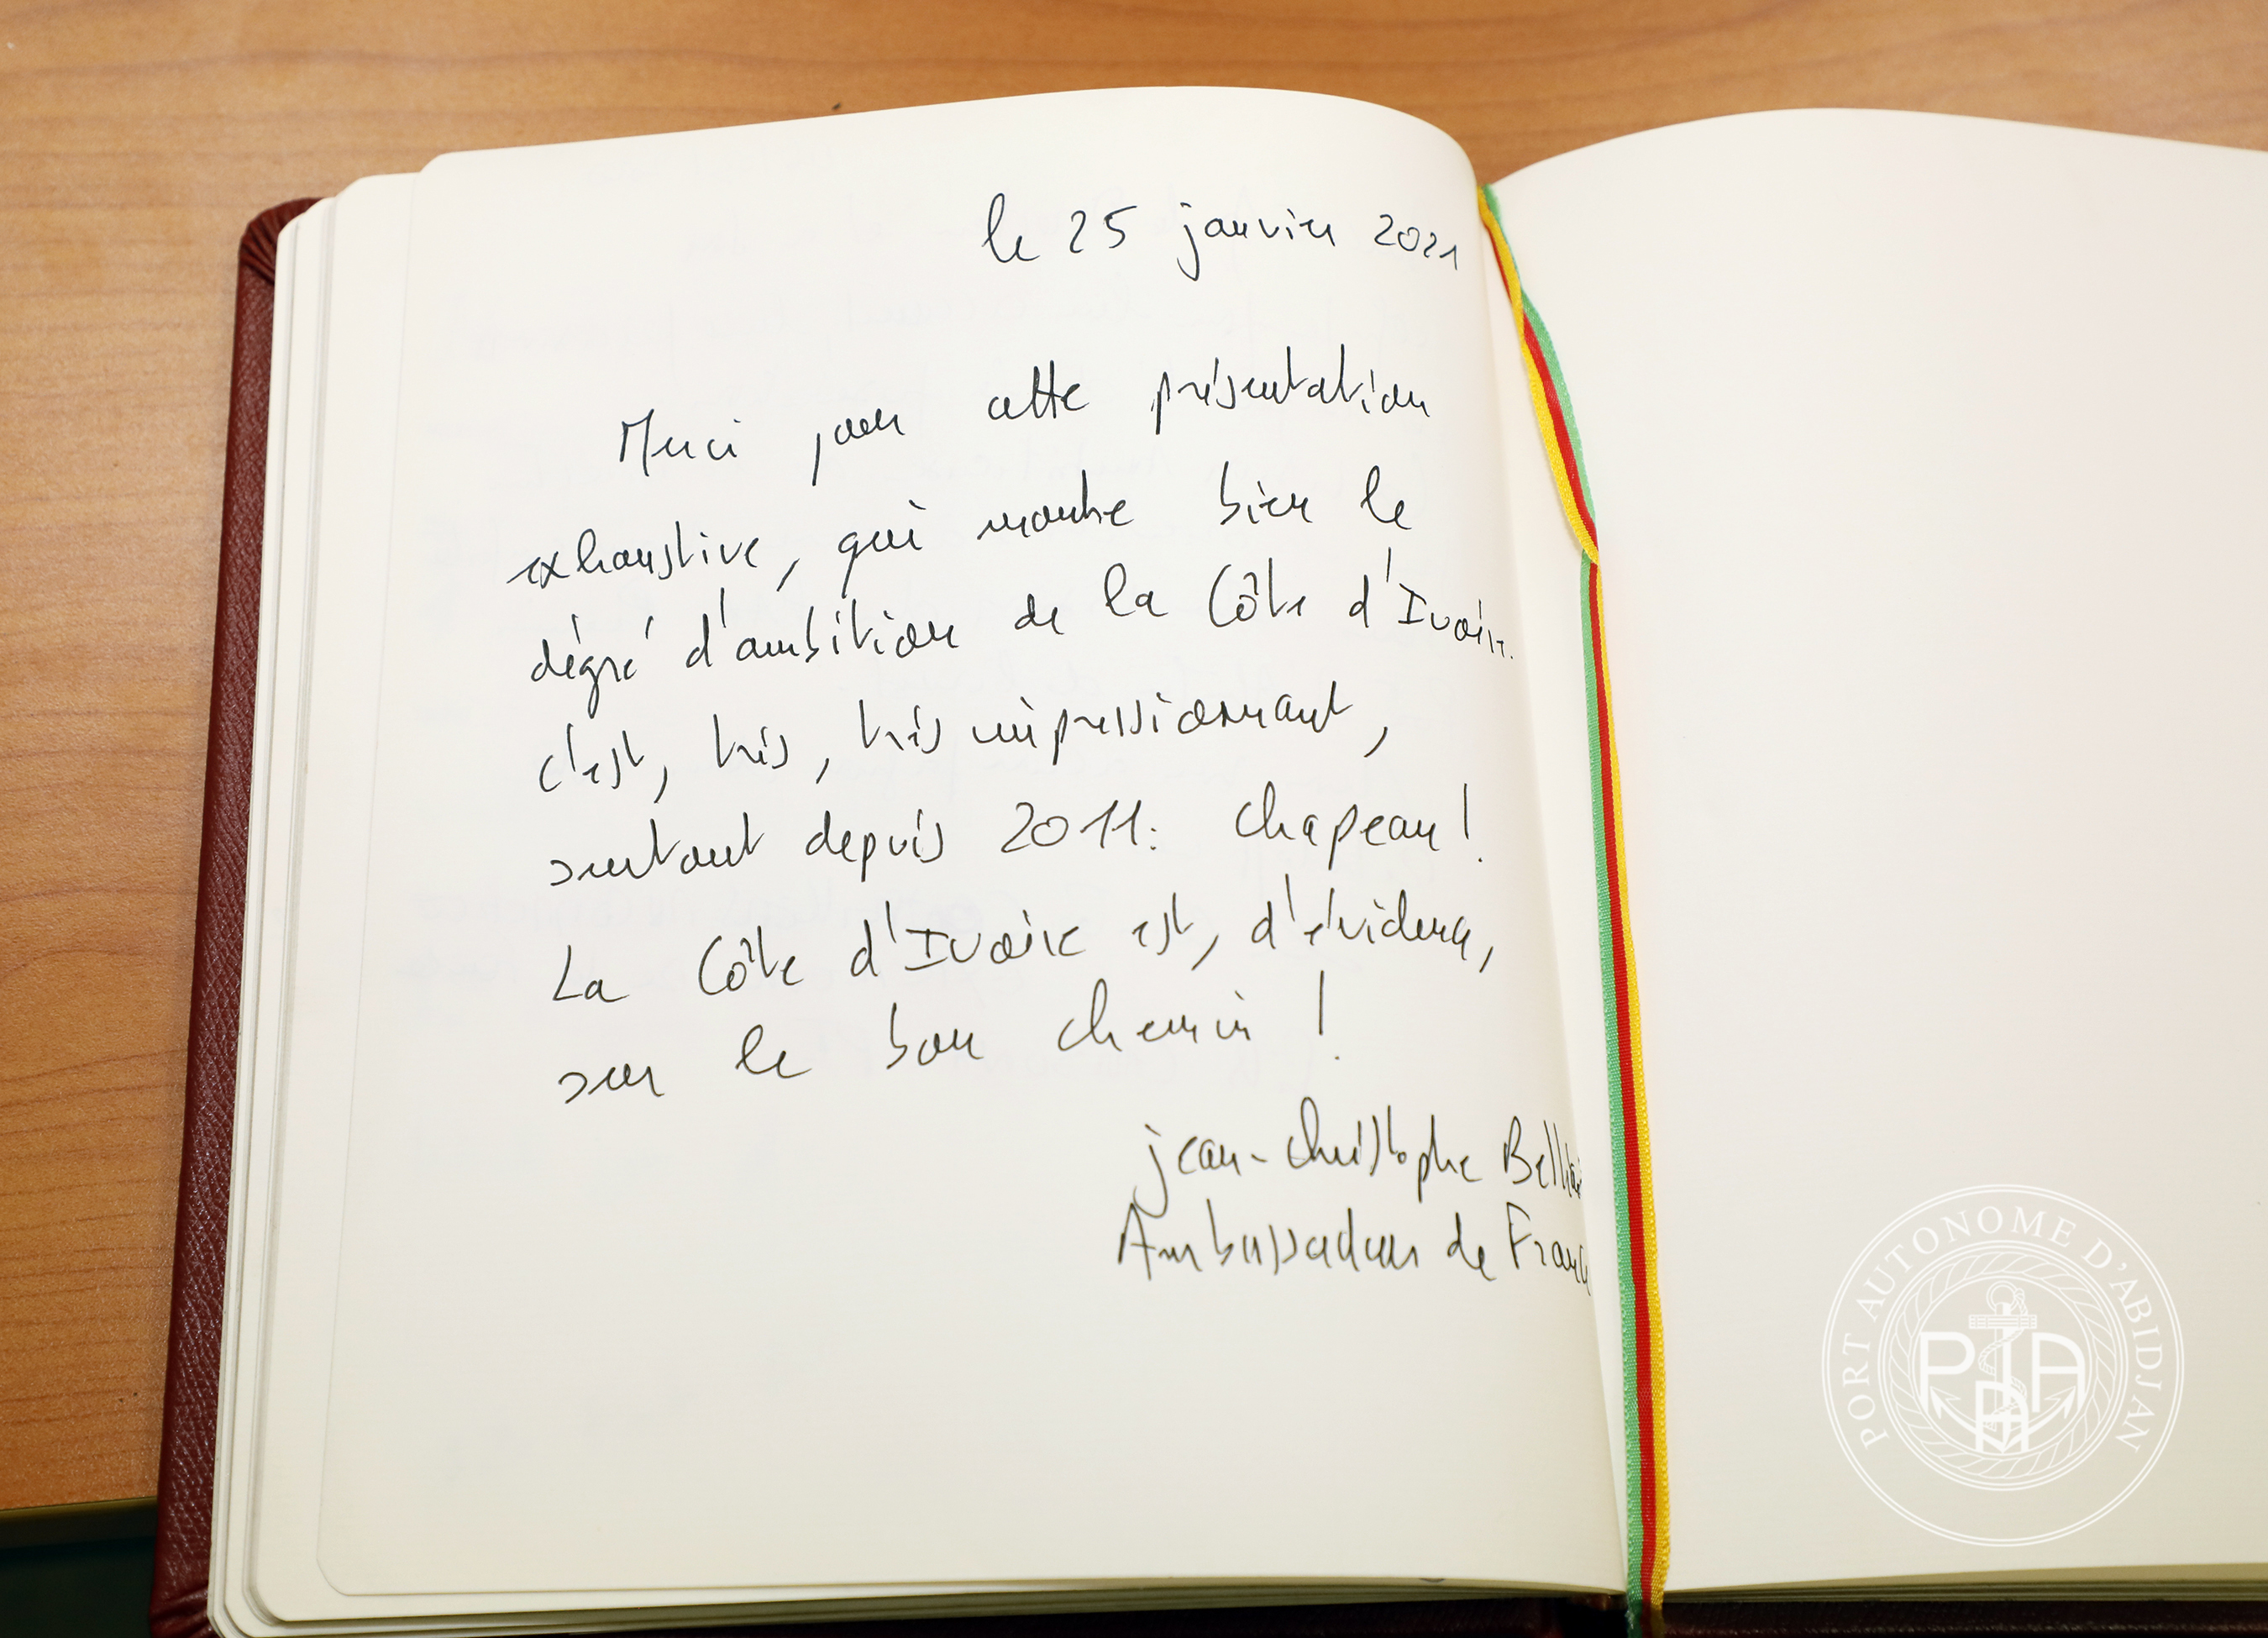 le 25 janvier 2021
Merci pour cette présentation
exhaustive, qui montre bien le
dégré d'ambition de la Côte d'Ivoire.
C'est, très, très impressionnant,
surtout depuis 2011: chapeau!
La Côte d'Ivoire est, d'évidence,
sur le bon chemin !
jean-christophe Belliar
Ambassadeur de France
PORT AUTONOME D'ABIDJAN
PAA